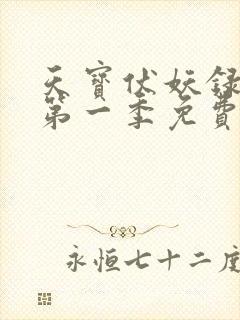 天寶伏妖録
第一季免費
永恒七十二度